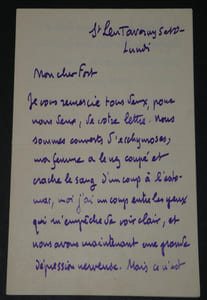 St Leu Taverny S et O
Lundi
Mon cher Fort
Je vous remercie tous deux, pour
nous deux, de votre lettre. Nous
sommes couverts d'ecchymoses;
ma femme a le nez coupé et
crache le sang d'un coup à l'esto-
mac, moi j'ai un coup entre les yeux
qui m'empêche de voir clair, et
nous avons maintenant une grande
dépression nerveuse. Mais ce n'est